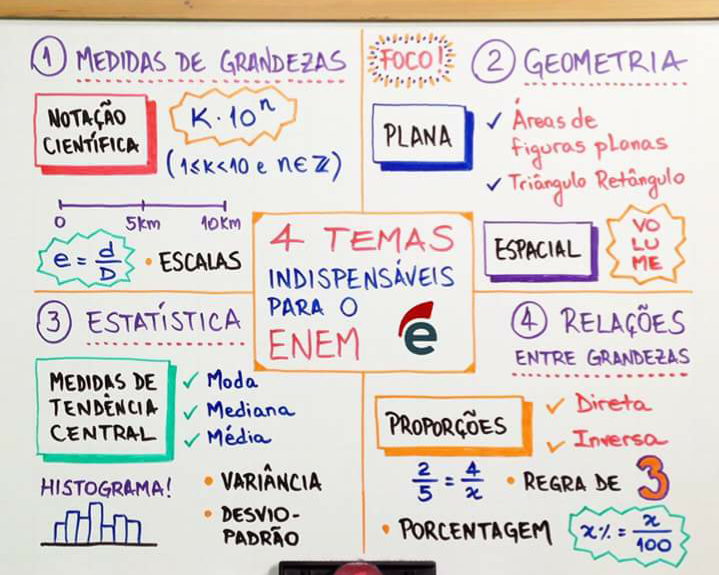 1 MEDIDAS DE GRANDEZAS
NOTAÇÃO
CIENTÍFICA
K · 10ⁿ
(1≤K<10 e n∈ℤ)
0 5km 10km
e = d/D
• ESCALAS
FOCO!
2 GEOMETRIA
PLANA
✓ Áreas de
figuras planas
✓ Triângulo Retângulo
ESPACIAL
VO
LU
ME
4 TEMAS
INDISPENSÁVEIS
PARA O
ENEM
e
3 ESTATÍSTICA
MEDIDAS DE
TENDÊNCIA
CENTRAL
✓ Moda
✓ Mediana
✓ Média
HISTOGRAMA!
• VARIÂNCIA
• DESVIO-
PADRÃO
4 RELAÇÕES
ENTRE GRANDEZAS
PROPORÇÕES
✓ Direta
✓ Inversa
2/5 = 4/x
• REGRA DE 3
• PORCENTAGEM
x% = x/100